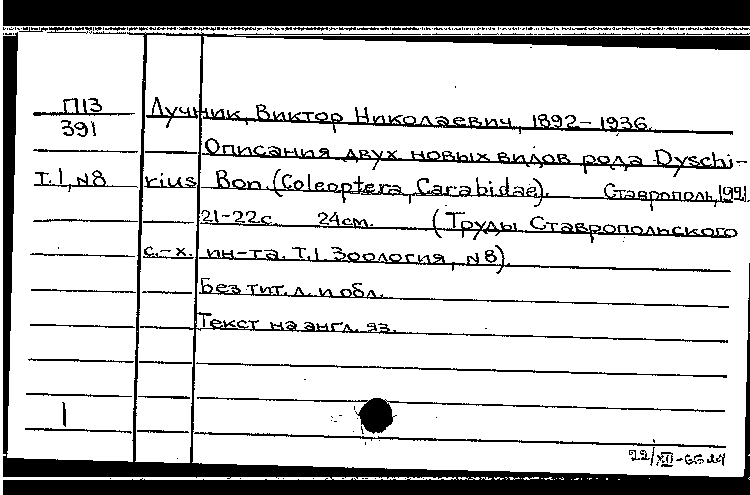 П13
391
Лучник, Виктор Николаевич, 1892-1936.
Описания двух новых видов рода Dyschi-
Т.1, №8 rius Bon. (Coleoptera, Carabidae). Ставрополь,
21-22с. 24см. (Труды Ставропольского
с.-х. ин-та. Т.1. Зоология, №8).
Без тит. л. и обл.
Текст на англ. яз.
1
22/XII-66